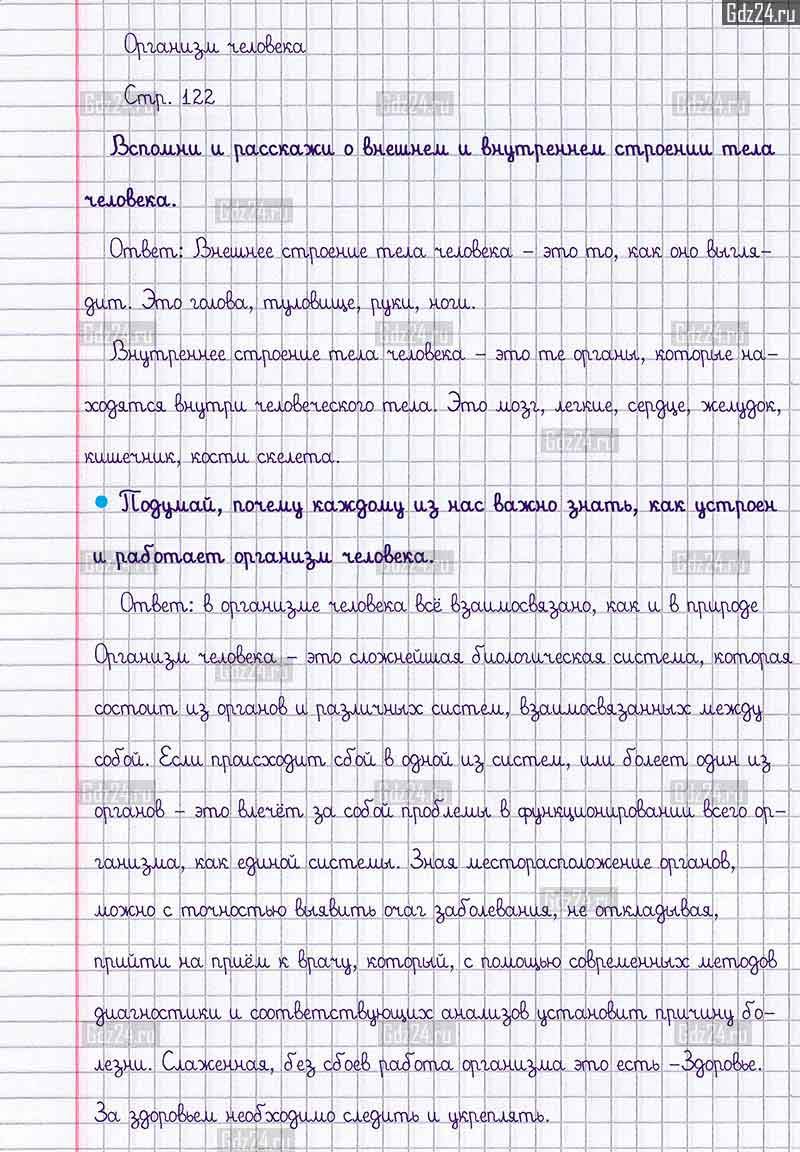 Gdz24.ru
Организм человека
Стр. 122
Вспомни и расскажи о внешнем и внутреннем строении тела
человека.
Ответ: Внешнее строение тела человека – это то, как оно выгля-
дит. Это голова, туловище, руки, ноги.
Внутреннее строение тела человека – это те органы, которые на-
ходятся внутри человеческого тела. Это мозг, легкие, сердце, желудок,
кишечник, кости скелета.
• Подумай, почему каждому из нас важно знать, как устроен
и работает организм человека.
Ответ: в организме человека всё взаимосвязано, как и в природе
Организм человека – это сложнейшая биологическая система, которая
состоит из органов и различных систем, взаимосвязанных между
собой. Если происходит сбой в одной из систем, или болеет один из
органов – это влечёт за собой проблемы в функционировании всего ор-
ганизма, как единой системы. Зная месторасположение органов,
можно с точностью выявить очаг заболевания, не откладывая,
прийти на приём к врачу, который, с помощью современных методов
диагностики и соответствующих анализов установит причину бо-
лезни. Слаженная, без сбоев работа организма это есть –Здоровье.
За здоровьем необходимо следить и укреплять.